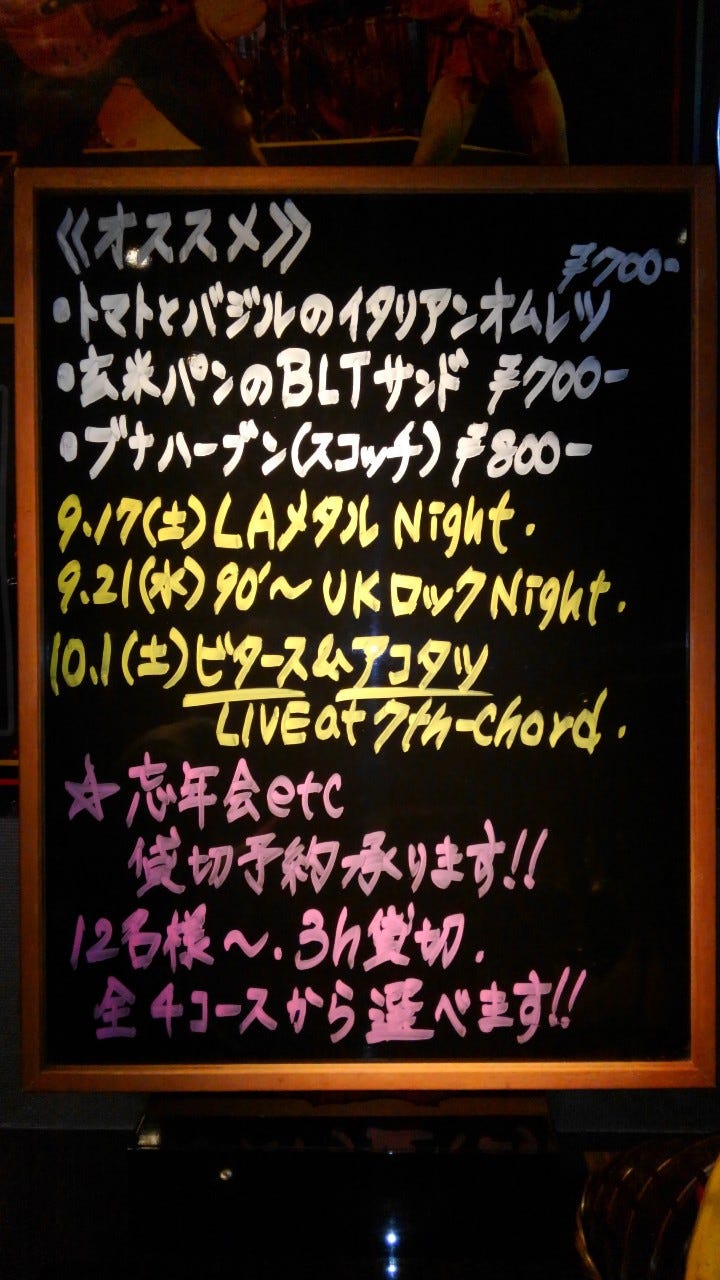 《オススメ》
¥700-
・トマトとバジルのイタリアンオムレツ
・玄米パンのBLTサンド ¥700-
・ブナハーブン(スコッチ) ¥800-
9.17(土)LAメタル Night.
9.21(水)90'〜UKロックNight.
10.1(土)ビタース&アコタツ
LIVE at 7th-Chord.
☆忘年会etc
貸切予約承ります!!
12名様〜.3h貸切.
全4コースから選べます!!